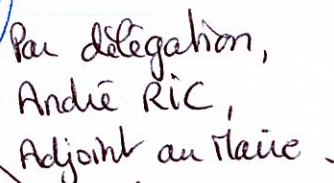 Par délégation,
André RIC,
Adjoint au Maire.